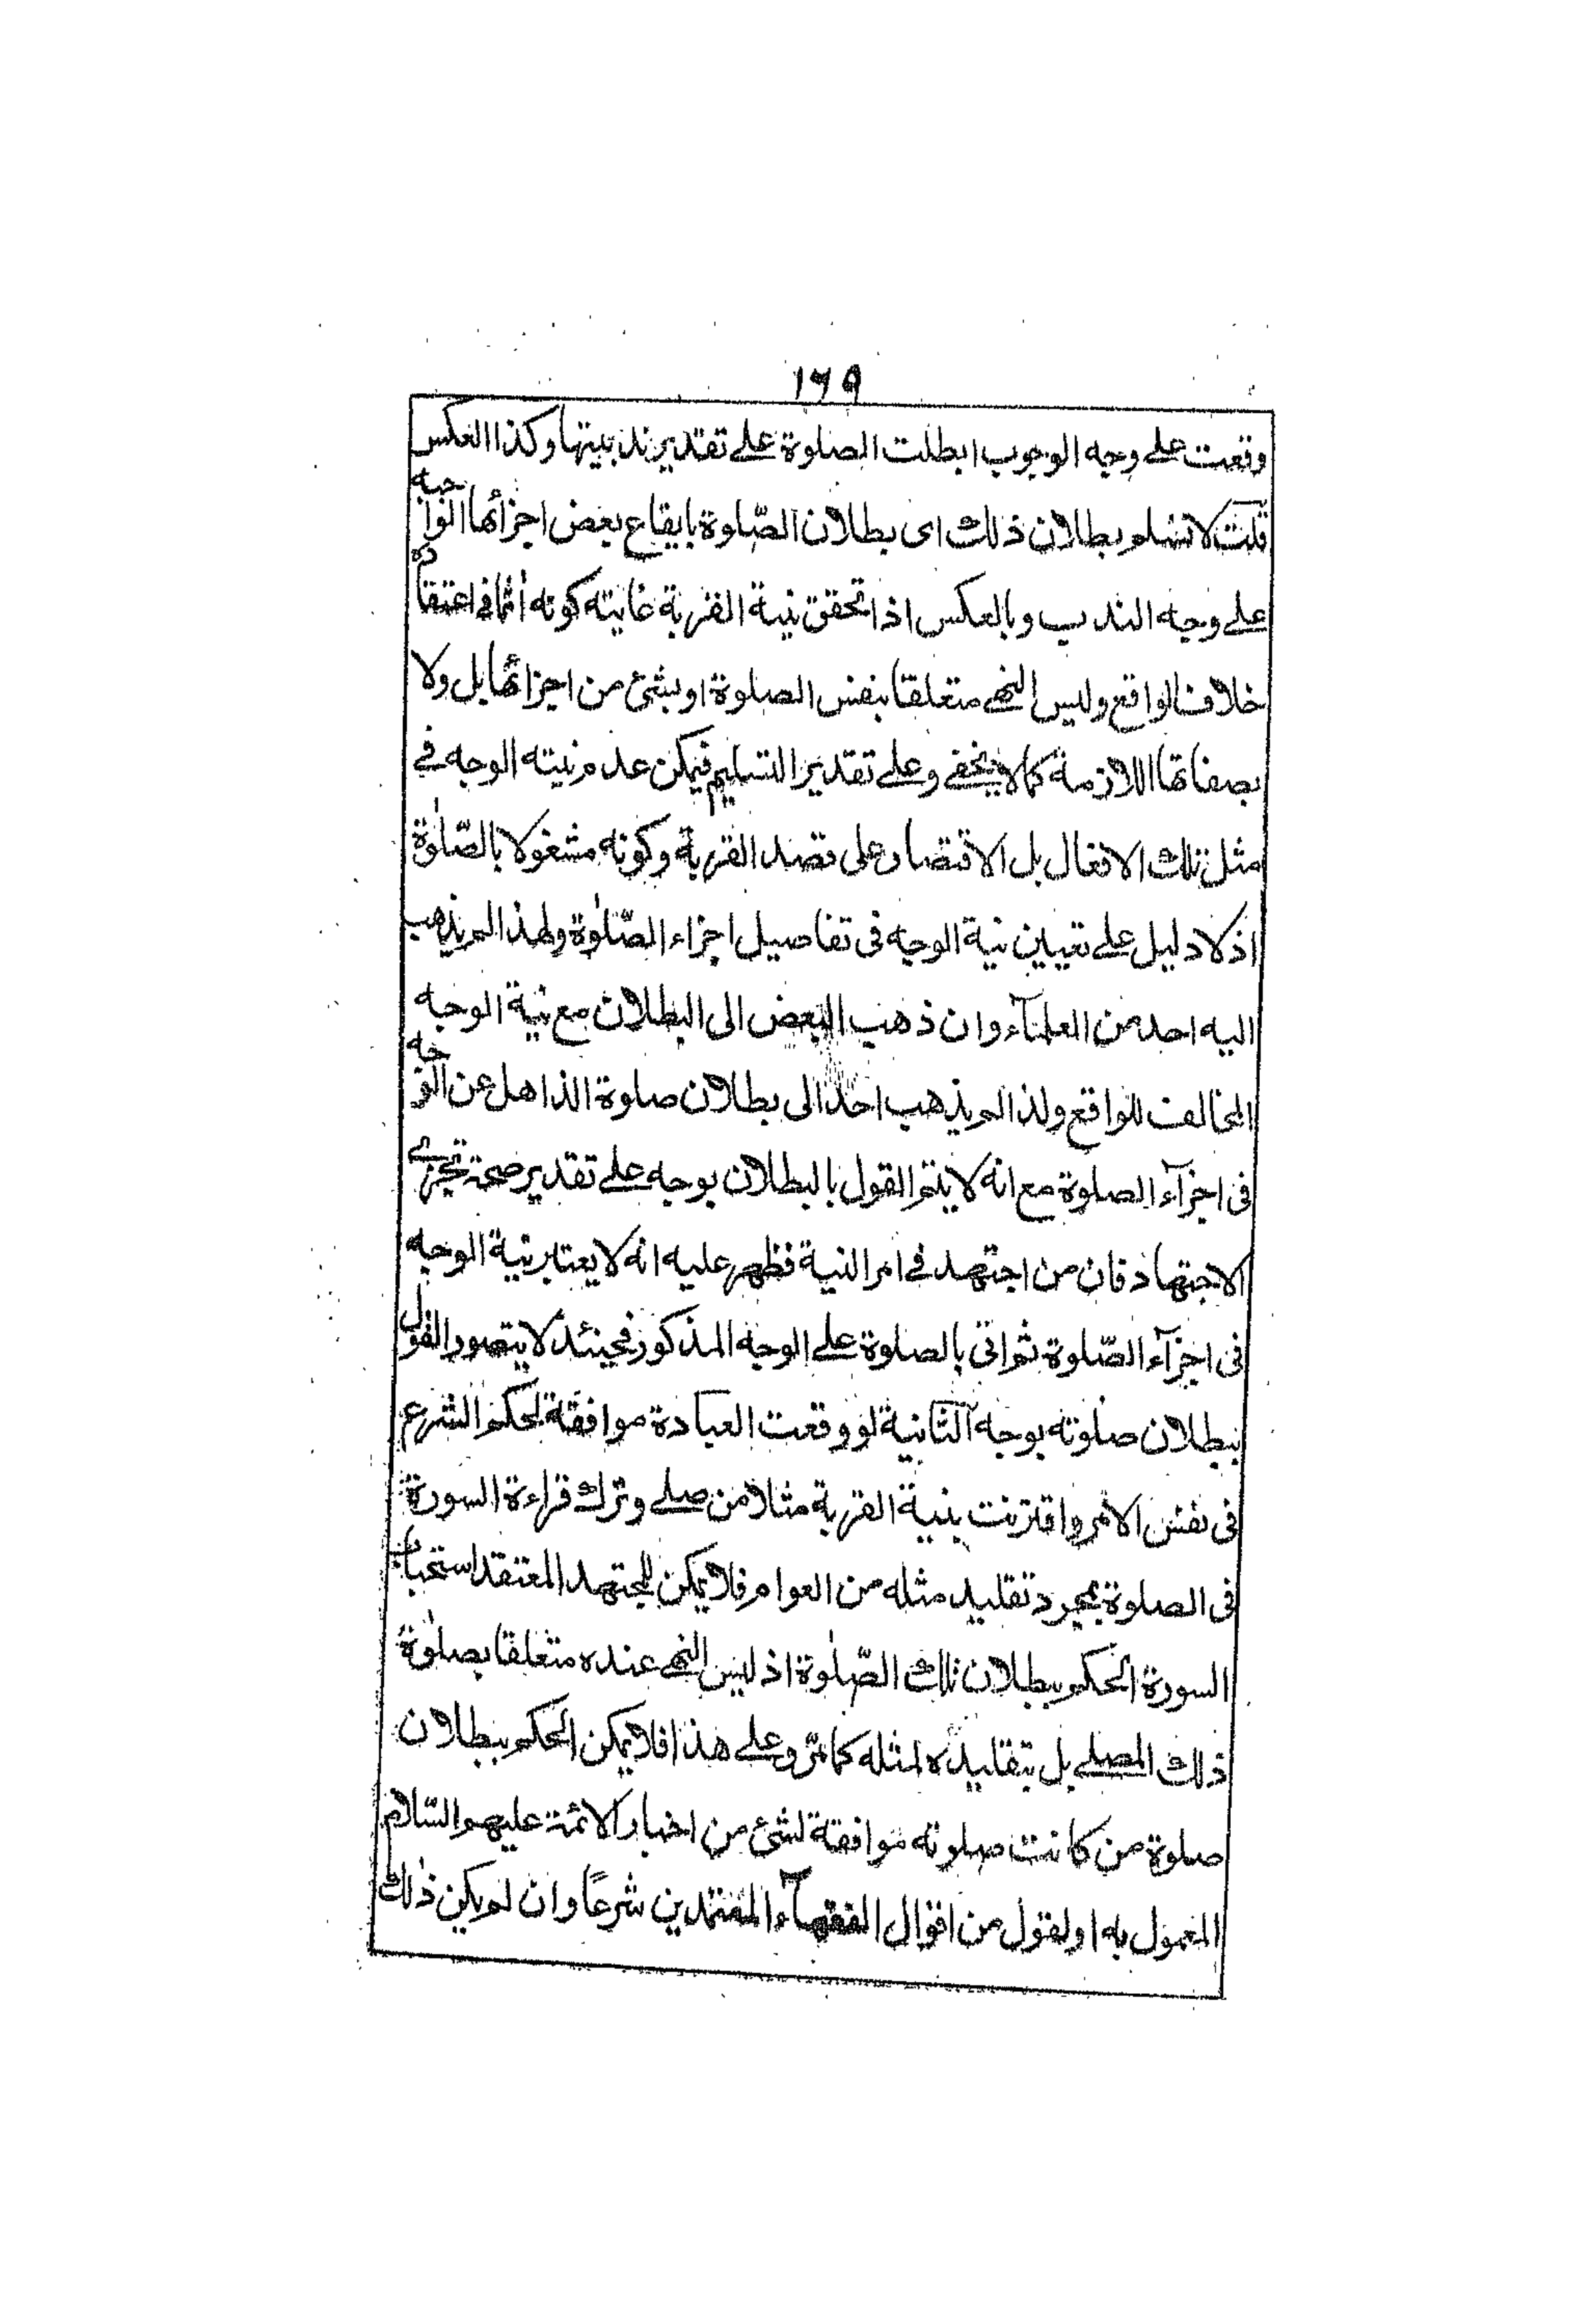 ١٦٩
وقعت على وجه الوجوب ابطلت الصلوة على تقدير ندبيتها وكذا العكس
قلت لا نسلم بطلان ذلك اى بطلان الصّلوة بايقاع بعض اجزائها الواجبه
على وجه الندب وبالعكس اذا تحقق نية القربة غايته كونه اثما فى اعتقاده
خلاف الواقع وليس النهى متعلقا بنفس الصلوة او بشئ من اجزائها بل ولا
بصفاتها اللازمة كما لا يخفى وعلى تقدير التسليم فيمكن عدم نيته الوجه فى
مثل تلك الافعال بل الاقتصار على قصد القربة وكونه مشغولا بالصّلوة
اذ لا دليل على تعيين نية الوجه فى تفاصيل اجزاء الصّلوة ولهذا لم يذهب
اليه احد من العلمآء وان ذهب البعض الى البطلان مع نية الوجه
المخالف للواقع ولذا لم يذهب احد الى بطلان صلوة الذاهل عن الوجه
فى اجزآء الصلوة مع انه لا يتم القول بالبطلان بوجه على تقدير صحة تجزى
الاجتهاد فان من اجتهد فى امر النية فظهر عليه انه لا يعتبر نية الوجه
فى اجزآء الصّلوة ثم اتى بالصلوة على الوجه المذكور فحينئذ لا يتصور القول
ببطلان صلوته بوجه الثانية لو وقعت العبادة موافقة لحكم الشرع
فى نفس الامر واقترنت بنية القربة مثلا من صلى وترك قراءة السورة
فى الصلوة بمجرد تقليد مثله من العوام فلا يمكن للمجتهد المعتقد استحباب
السورة الحكم ببطلان تلك الصّلوة اذ ليس النهى عنده متعلقا بصلوة
ذلك المصلى بل بتقليده لمثله كما مرّ وعلى هذا فلا يمكن الحكم ببطلان
صلوة من كانت صلوته موافقة لشئ من اخبار الائمة عليهم السّلام
المعمول به او لقول من اقوال الفقهآء المعتمدين شرعًا وان لم يكن ذلك